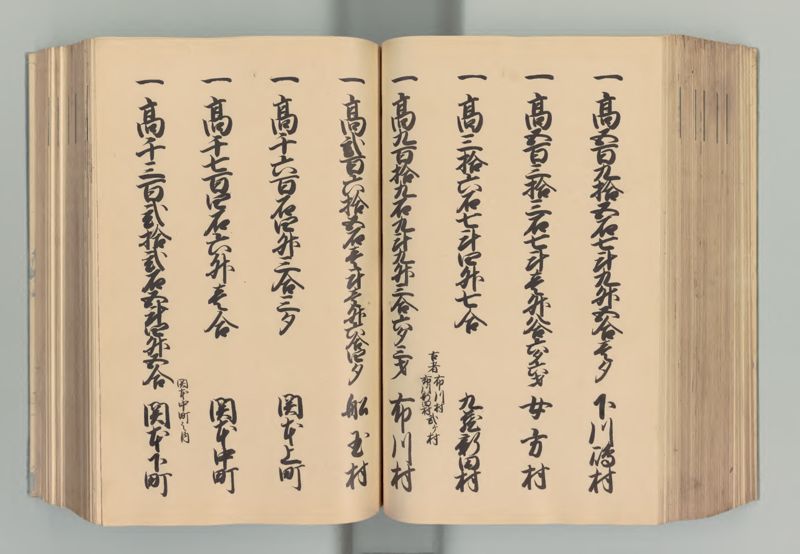 一 高五百九拾五石七斗九升五合壱夕 下川嶋村
一 高五百三拾三石七斗壱升八合六夕壱才 女方村
一 高三拾六石七斗四升七合 九蔵新田村
古者 布川村
布川新田村弐ヶ村
一 高九百拾九石九斗九升三合六夕三才 布川村
一 高弐百六拾五石壱斗壱升六合四夕 船玉村
一 高千六百石四升三合三夕 関本上町
一 高千七百四石六升壱合 関本中町
関本中町之内
一 高千三百弐拾弐石五斗四升五合 関本下町